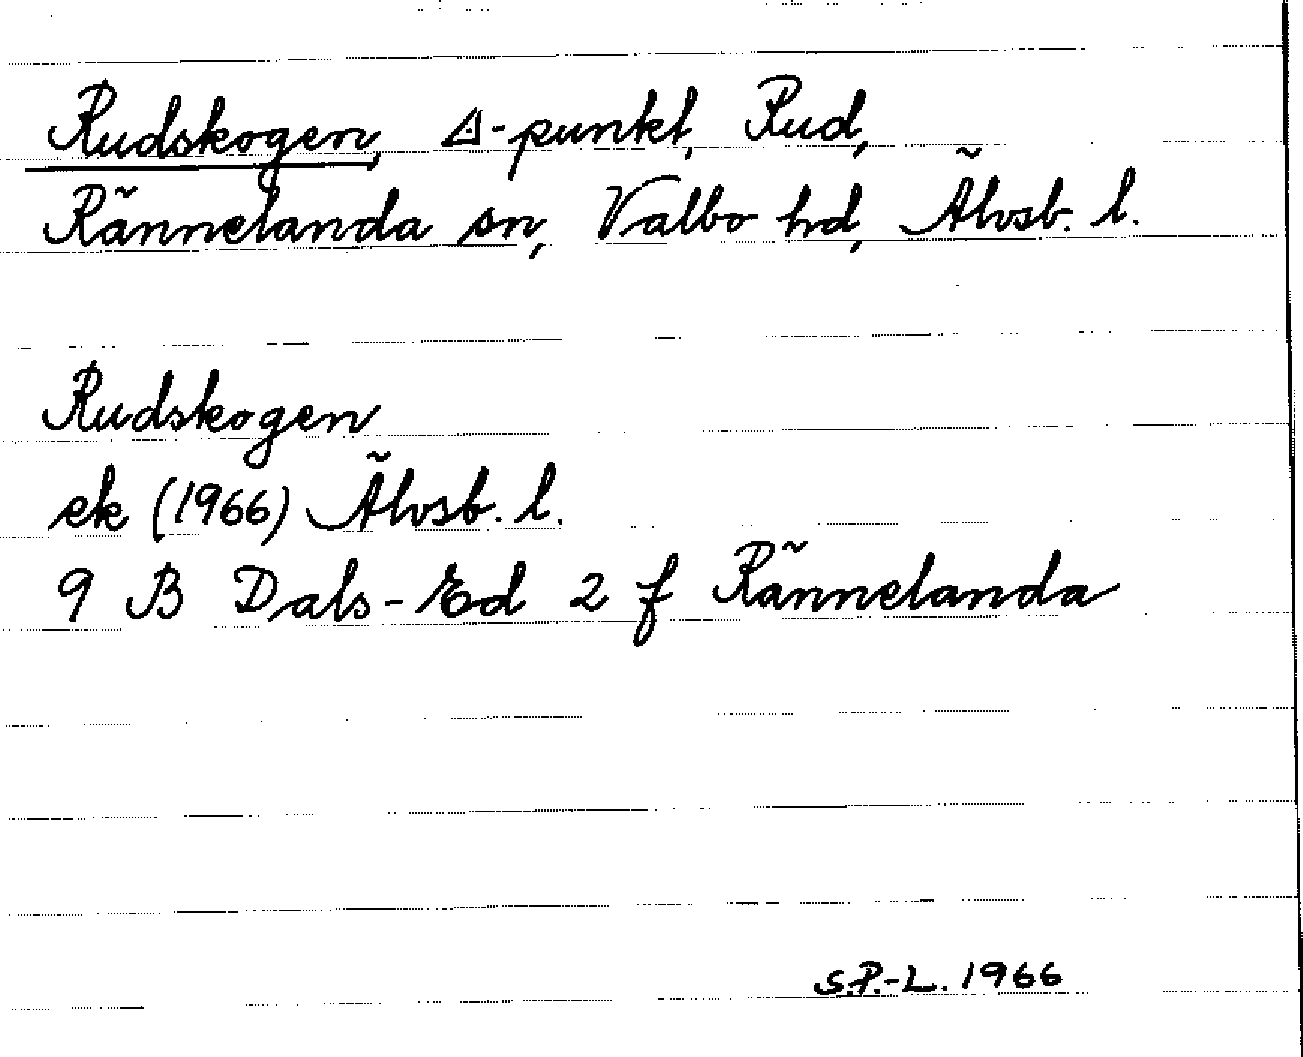 Rudskogen, △-punkt, Rud,
Rännelanda sn, Valbo hd, Älvsb. l.
Rudskogen
ek (1966) Älvsb. l.
9 B Dals-Ed 2 f Rännelanda
S.P.-L. 1966